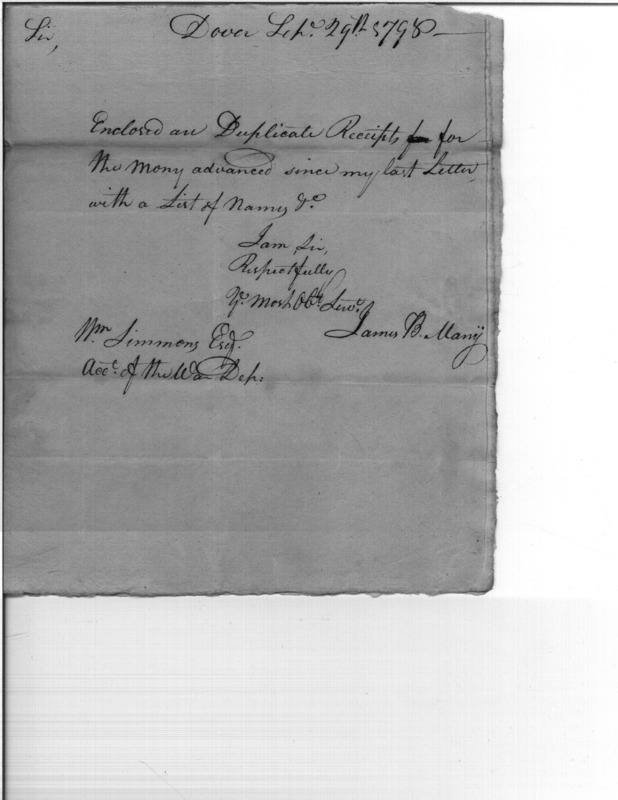 Sir, Dover Sepr. 29th 1798
Enclosed are Duplicate Receipts for for
the Mony advanced since my last Letter,
with a List of Names &c.
I am, Sir,
Respectfully
Yr. Most Obt. Servt.
James B. Many
Wm Simmons Esqr.
Acct. of the War Dep: